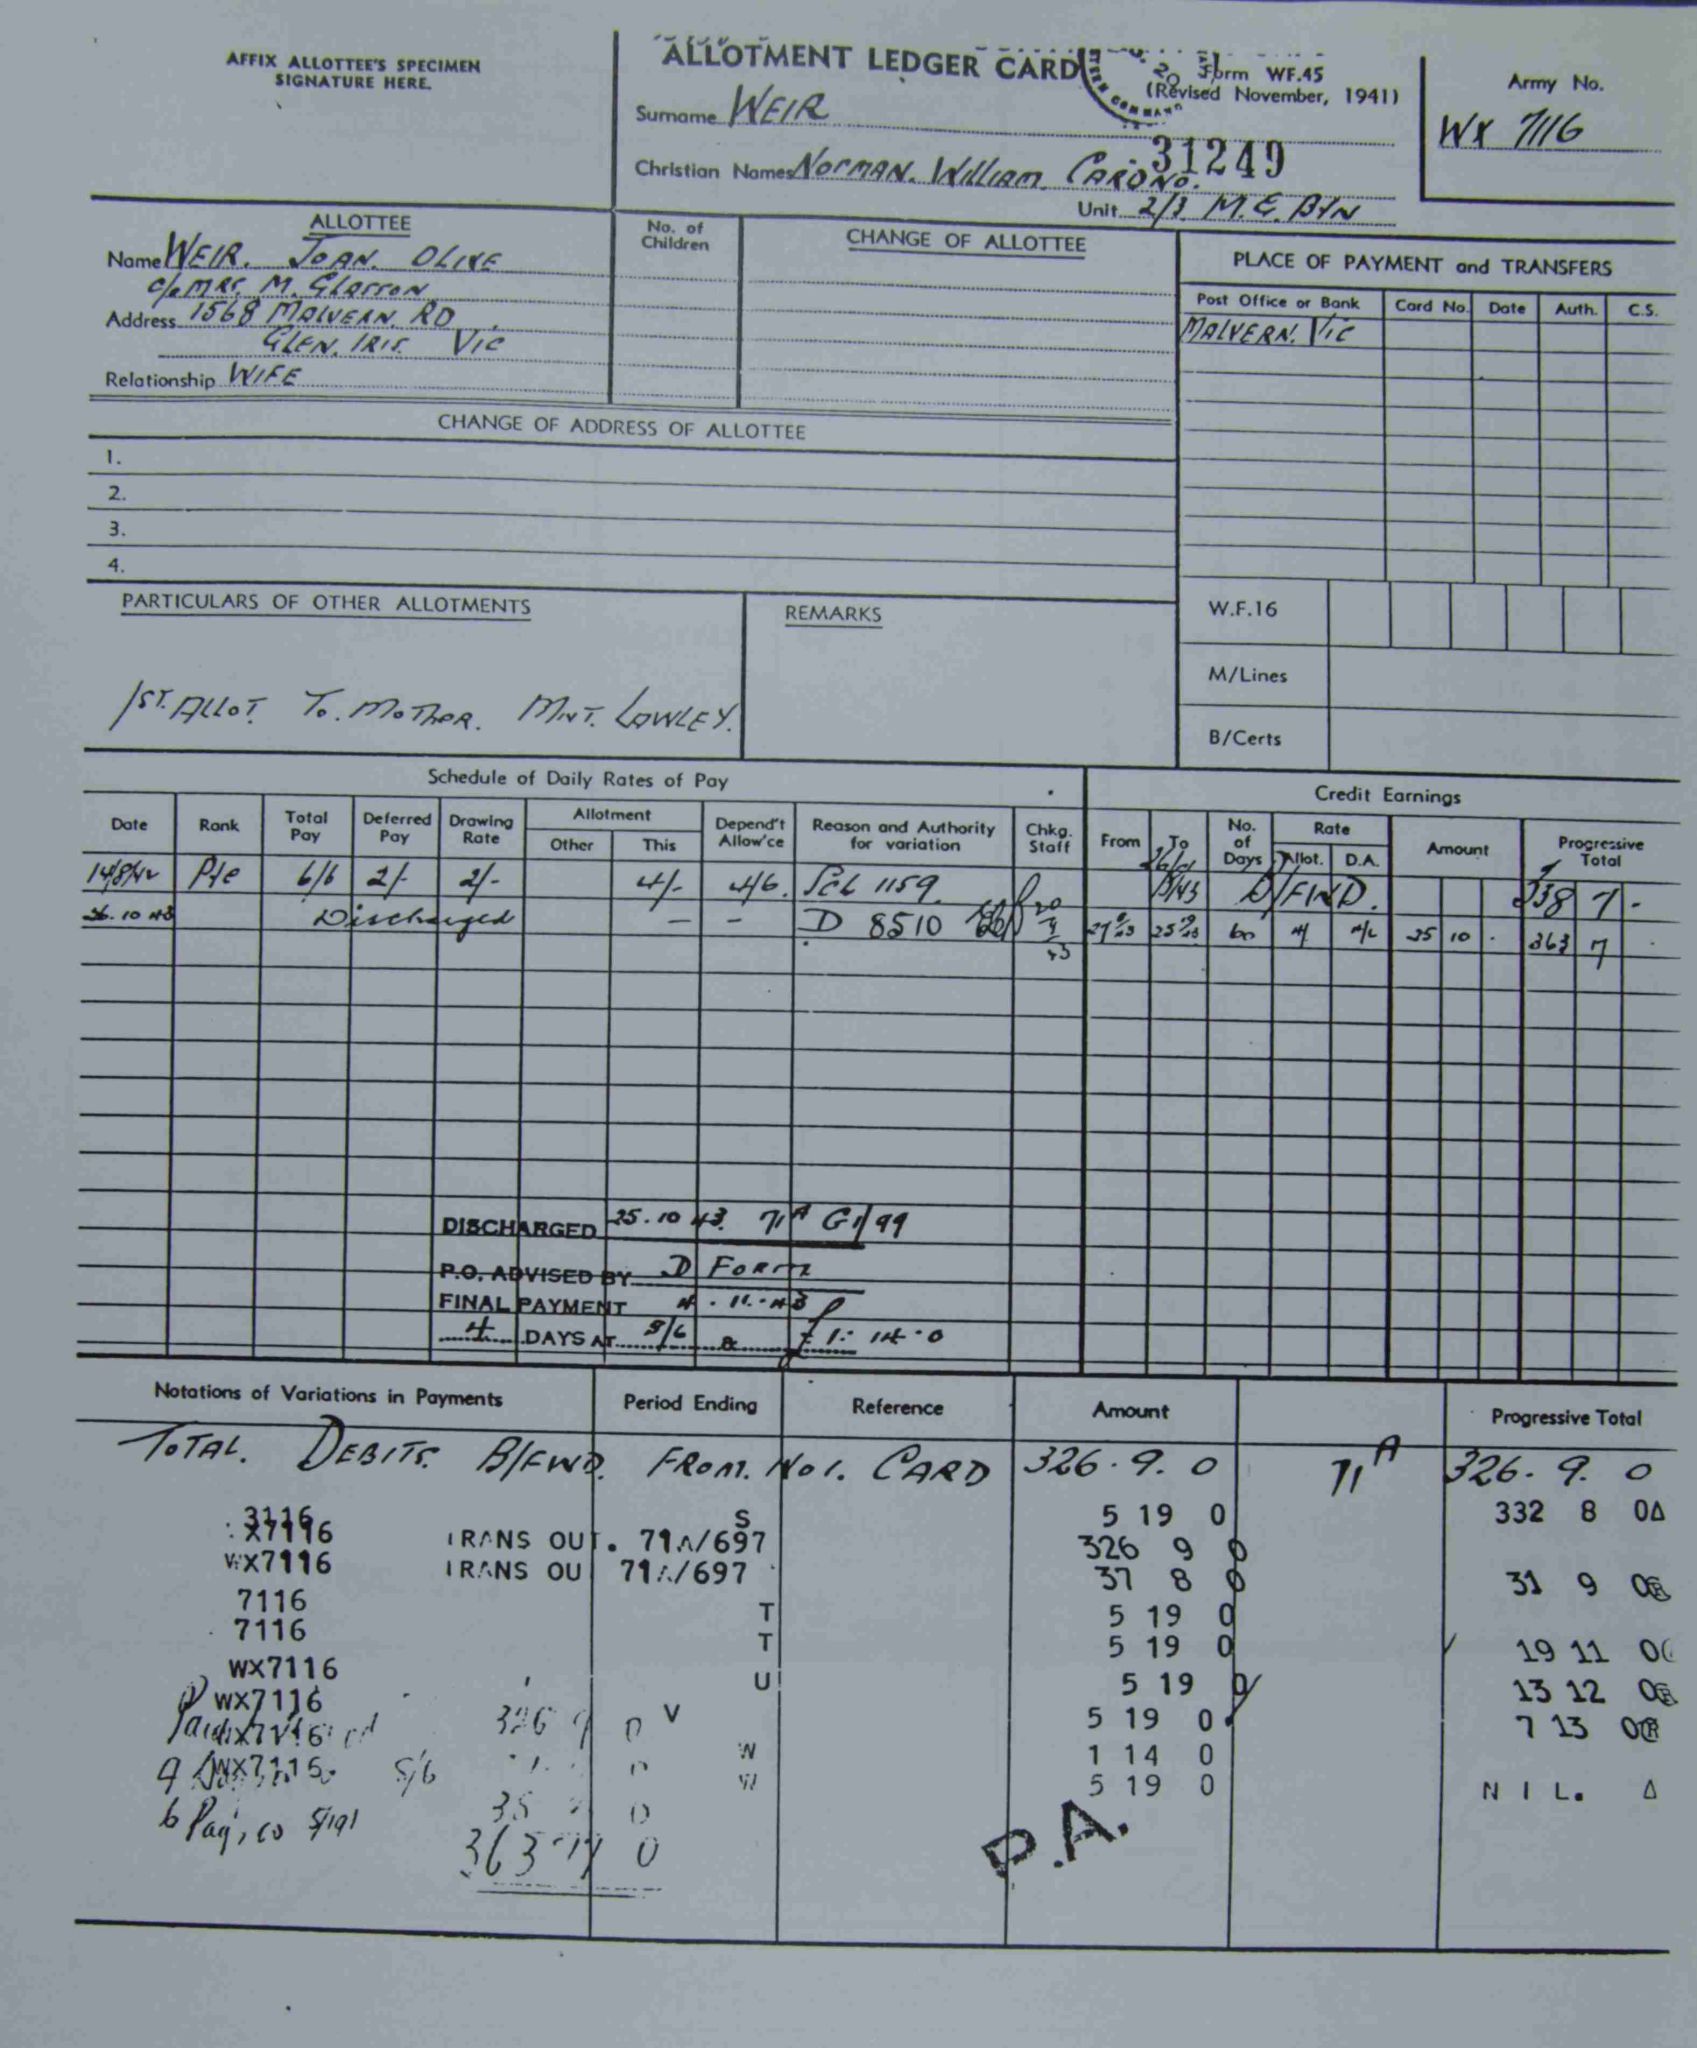 AFFIX ALLOTTEE'S SPECIMEN
SIGNATURE HERE.
ALLOTMENT LEDGER CARD
Form WF.45
(Revised November, 1941)
Army No.
WX 7116
Surname WEIR
31249
Christian Names NORMAN. WILLIAM. CARD No.
Unit 2/3. M.G. B/N
ALLOTTEE
Name WEIR. JOAN. OLIVE
c/o MRS. M. GLASSON
Address 1568 MALVERN RD
GLEN. IRIS. VIC
Relationship WIFE
No. of
Children
CHANGE OF ALLOTTEE
PLACE OF PAYMENT and TRANSFERS
Post Office or Bank Card No. Date Auth. C.S.
MALVERN. VIC
CHANGE OF ADDRESS OF ALLOTTEE
1.
2.
3.
4.
PARTICULARS OF OTHER ALLOTMENTS
REMARKS
W.F.16
M/Lines
B/Certs
1ST. ALLOT. To. MOTHER. MNT. LAWLEY.
Schedule of Daily Rates of Pay
Credit Earnings
Date Rank Total Pay Deferred Pay Drawing Rate Allotment Other This Depend't Allow'ce Reason and Authority for variation Chkg. Staff From To No. of Days Rate Allot. D.A. Amount Progressive Total
14/8/42 Pte 6/6 2/- 2/- 4/- 4/6. 1159 B/FWD. 338 7 -
26.10 43 Discharged - - D 8510 60 25 10 . 363 7 .
DISCHARGED 25.10 43. 71A G1/99
P.O. ADVISED BY D FORM
FINAL PAYMENT 4.11.43
4 DAYS AT 8/6 £1.14.0
Notations of Variations in Payments Period Ending Reference Amount Progressive Total
TOTAL. DEBITS. B/FWD. FROM. No 1. CARD 326.9.0 71A 326.9.0
3116 S 5 19 0 332 8 0Δ
X7116 TRANS OUT. 71A/697 326 9 0
WX7116 TRANS OU 71A/697 37 8 0 31 9 0
7116 T 5 19 0
7116 T 5 19 0 19 11 0
WX7116 U 5 19 0 13 12 0
WX7116 326 9 0 V 5 19 0 7 13 0
5/6 W 1 14 0
WX7116 W 5 19 0 NIL. Δ
6 Pay, 5/19/
363 0
P.A.